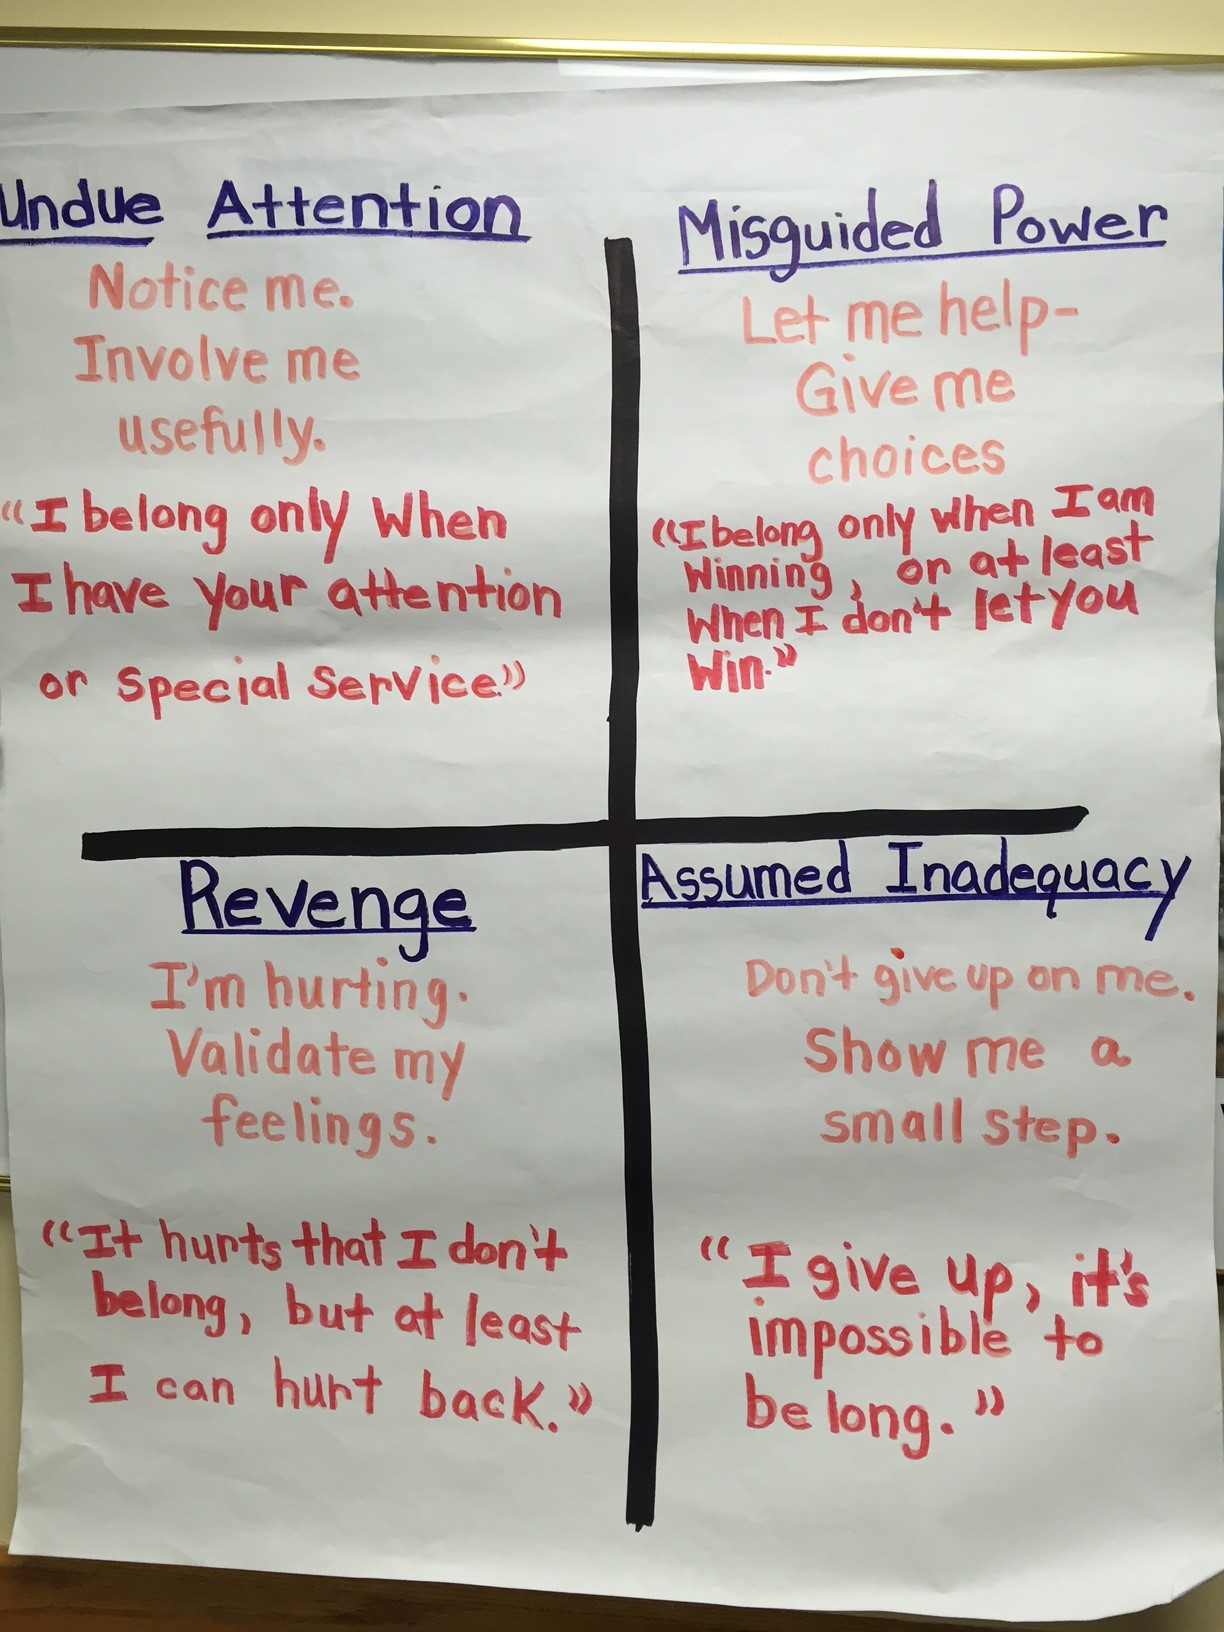 Undue Attention
Notice me.
Involve me
usefully.
"I belong only when
I have your attention
or special service."
Misguided Power
Let me help-
Give me
choices
"I belong only when I am
winning, or at least
when I don't let you
win."
Revenge
I'm hurting.
Validate my
feelings.
"It hurts that I don't
belong, but at least
I can hurt back."
Assumed Inadequacy
Don't give up on me.
Show me a
small step.
"I give up, it's
impossible to
belong."